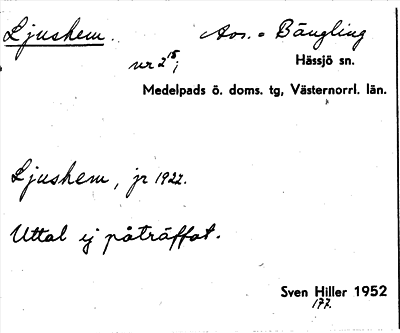 Ljushem. Avs. = Bängling
nr 2¹⁵;
Hässjö sn.
Medelpads ö. doms. tg, Västernorrl. län.
Ljushem, jr 1922.
Uttal ej påträffat.
Sven Hiller 1952
177.